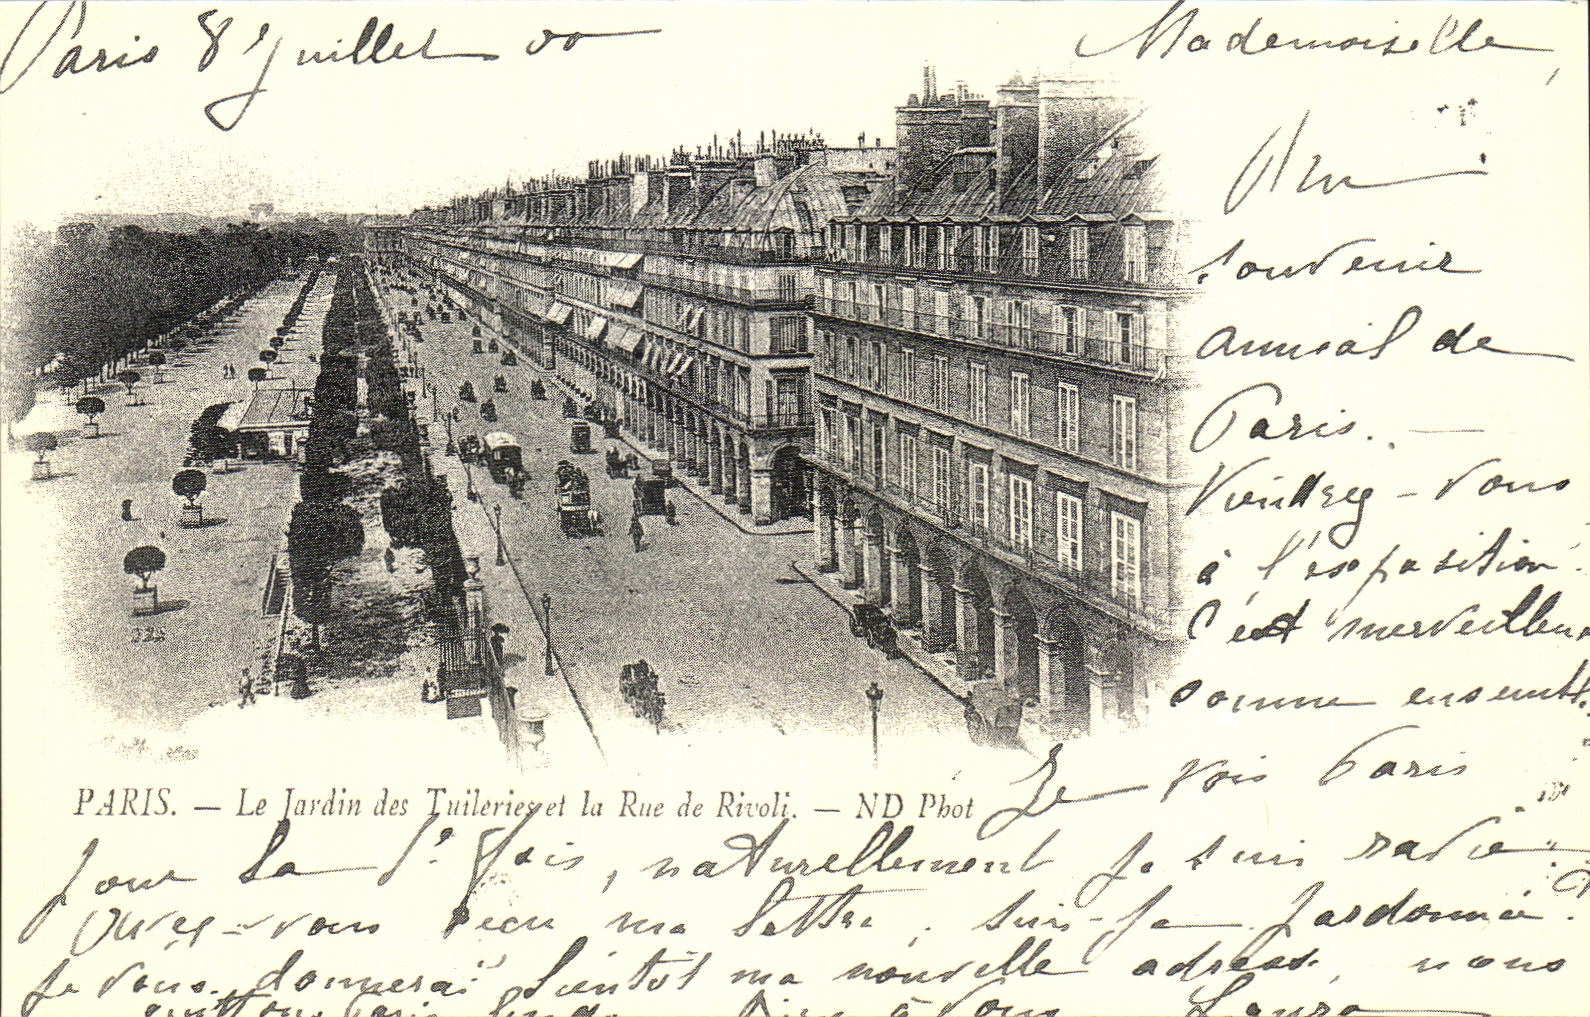 Paris 8 Juillet 00
Mademoiselle,
Un
souvenir
annuál de
Paris. —
Viendrez-vous
à l'exposition.
C'est merveilleux
comme ensemble.
PARIS. — Le Jardin des Tuileries et la Rue de Rivoli. — ND Phot
Je vois Paris
pour la 1e fois, naturellement je suis ravie
Avez-vous reçu ma lettre, suis-je pardonnée?
Je vous donnerai bientôt ma nouvelle adresse, nous
quittons Paris lundi. Bien à vous